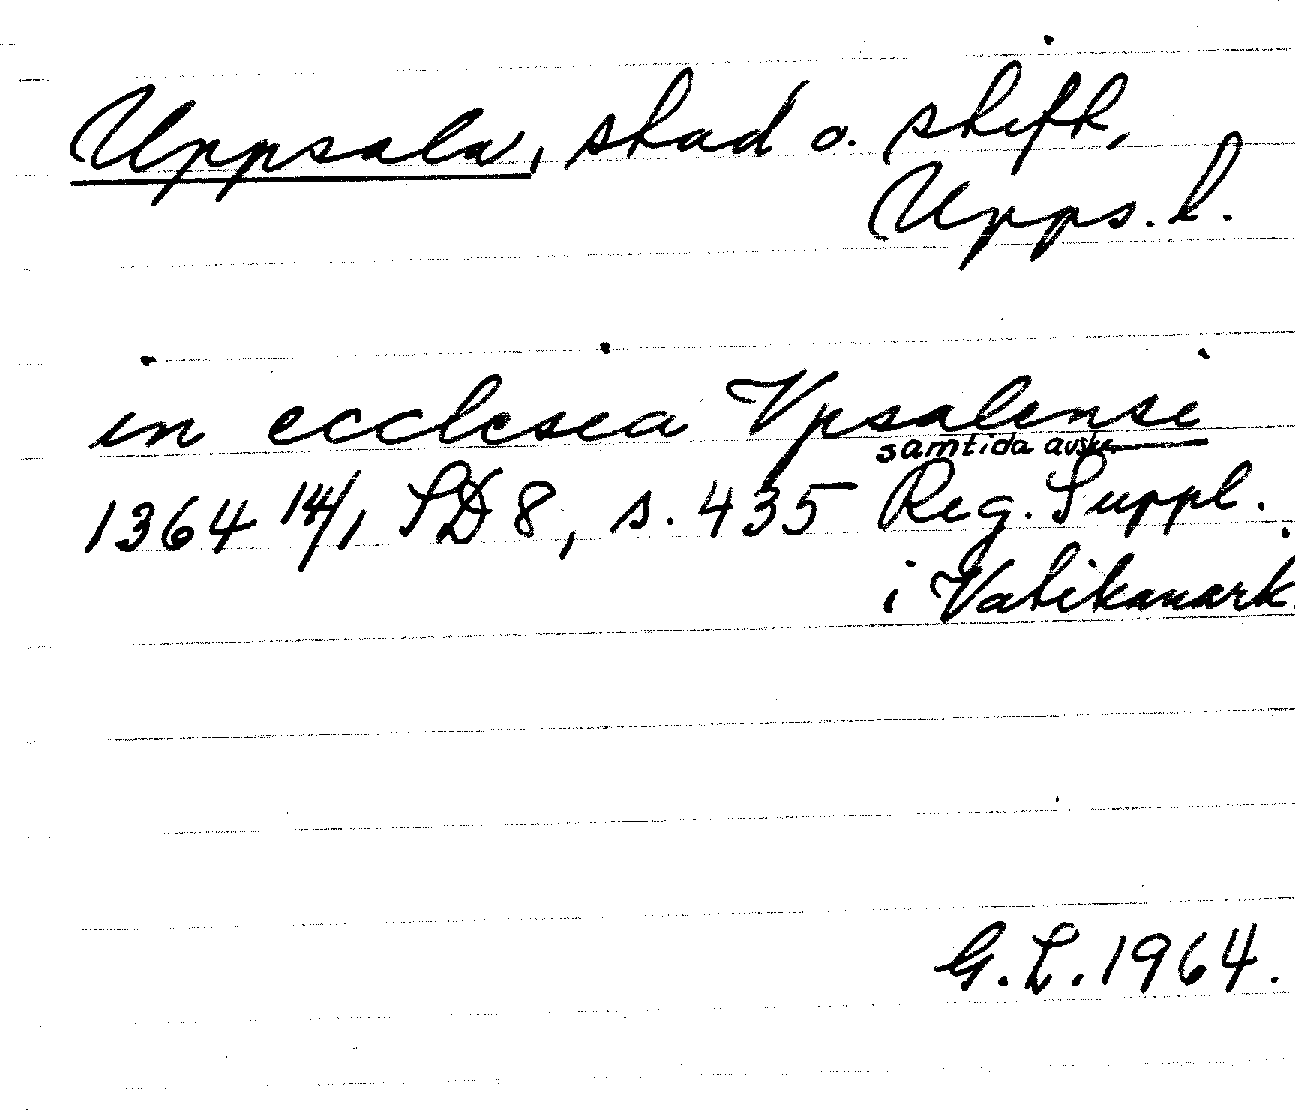 Uppsala, stad o. stift,
Upps. l.
in ecclesia Vpsalensi
samtida avskr.
1364 14/1 SD 8, s. 435 Reg. Suppl.
i Vatikanark.
G. L. 1964.